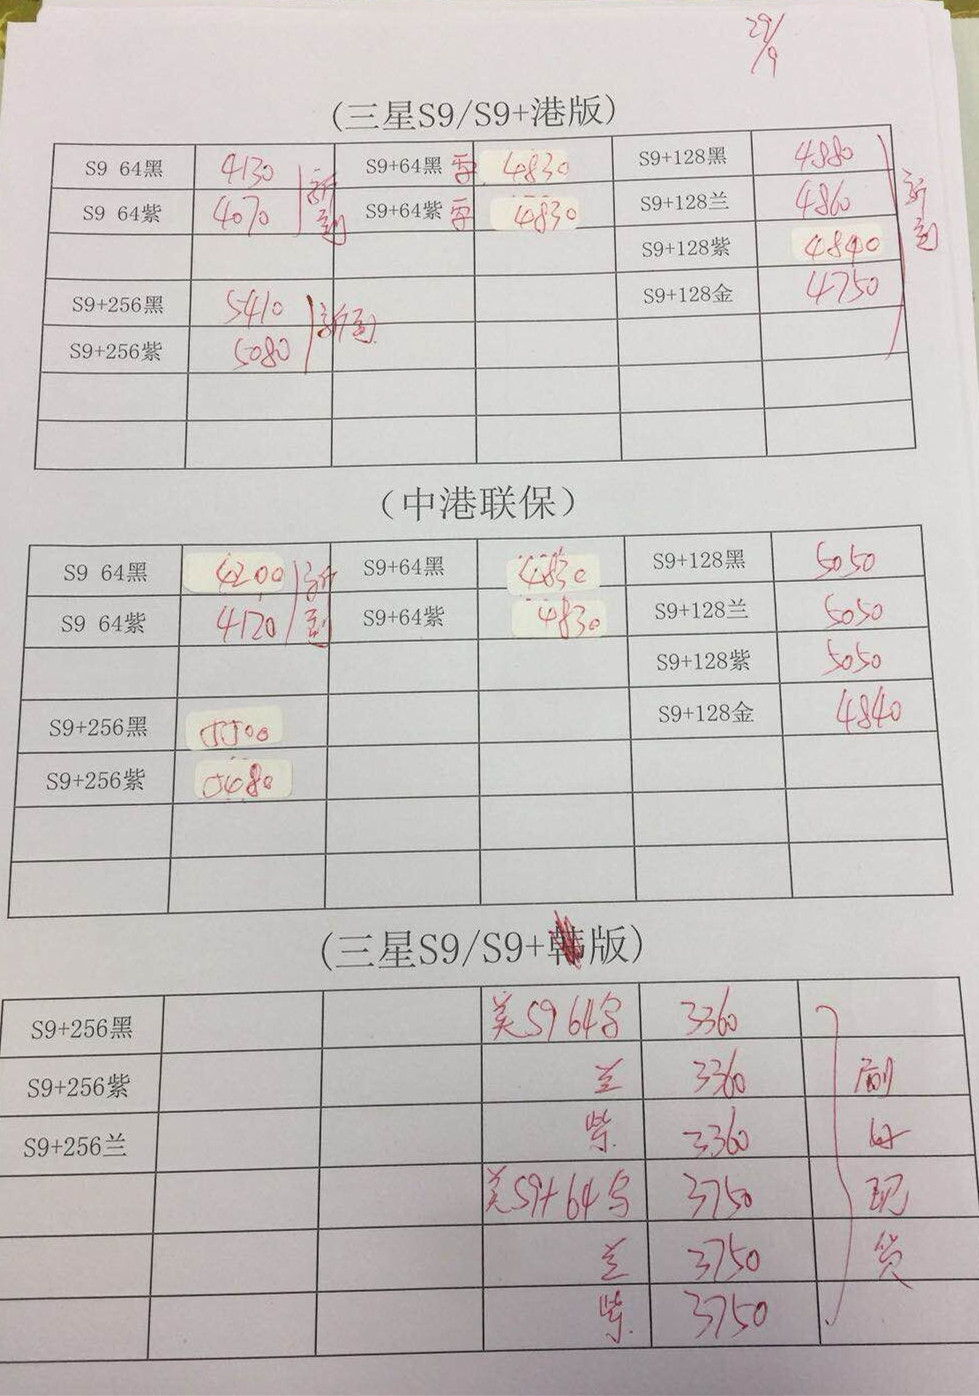 29/9
(三星S9/S9+港版)
S9 64黑 4130 S9+64黑 4830 S9+128黑 4880
S9 64紫 4070 新到 S9+64紫 4830 S9+128兰 4860 新到
S9+128紫 4840
S9+256黑 5410 S9+128金 4750
S9+256紫 5080 新到
(中港联保)
S9 64黑 4200 S9+64黑 4830 S9+128黑 5050
S9 64紫 4120 新到 S9+64紫 4830 S9+128兰 5050
S9+128紫 5050
S9+256黑 5500 S9+128金 4840
S9+256紫 5480
(三星S9/S9+韩版)
S9+256黑 美S9 64 3360
S9+256紫 兰 3360 刷
S9+256兰 紫 3360 好
美S9+64 3750 现
兰 3750 货
紫 3750